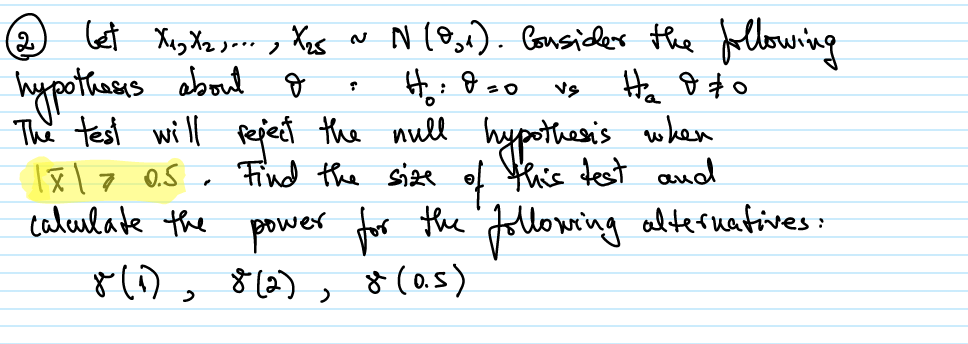 ② Let X₁, X₂, ... , X₂₅ ~ N(θ,1). Consider the following
hypothesis about θ : H₀: θ=0 vs Hₐ θ≠0
The test will reject the null hypothesis when
|x̄| ≥ 0.5 . Find the size of this test and
calculate the power for the following alternatives:
γ(1) , γ(2) , γ(0.5)